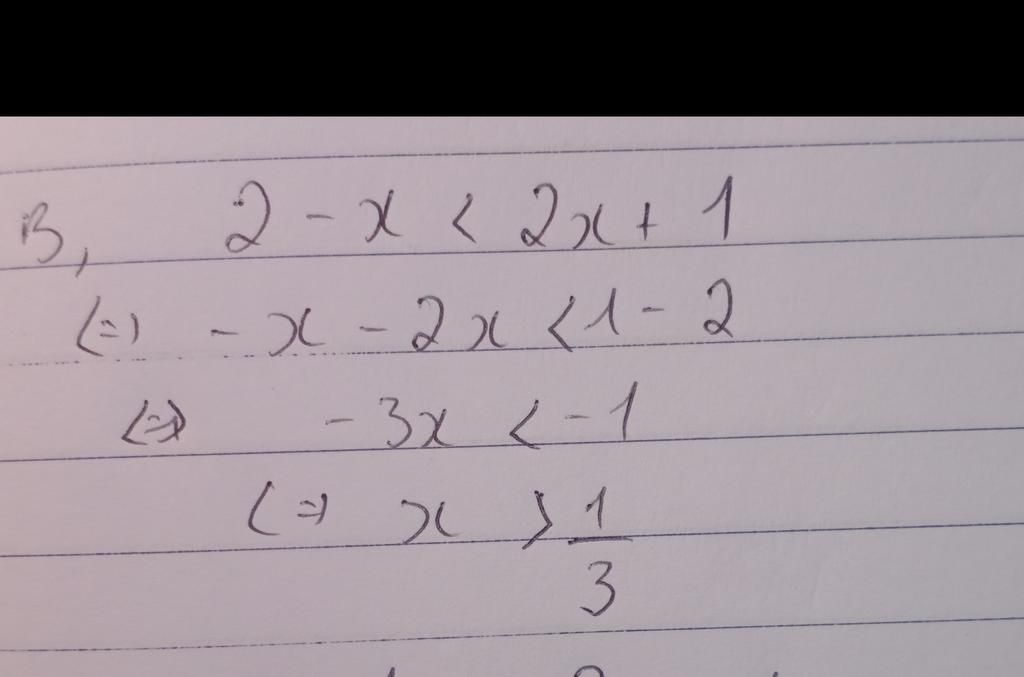 B, 2 - x < 2x + 1
(=) - x - 2x < 1 - 2
<=> - 3x < - 1
(=) x > 1/3